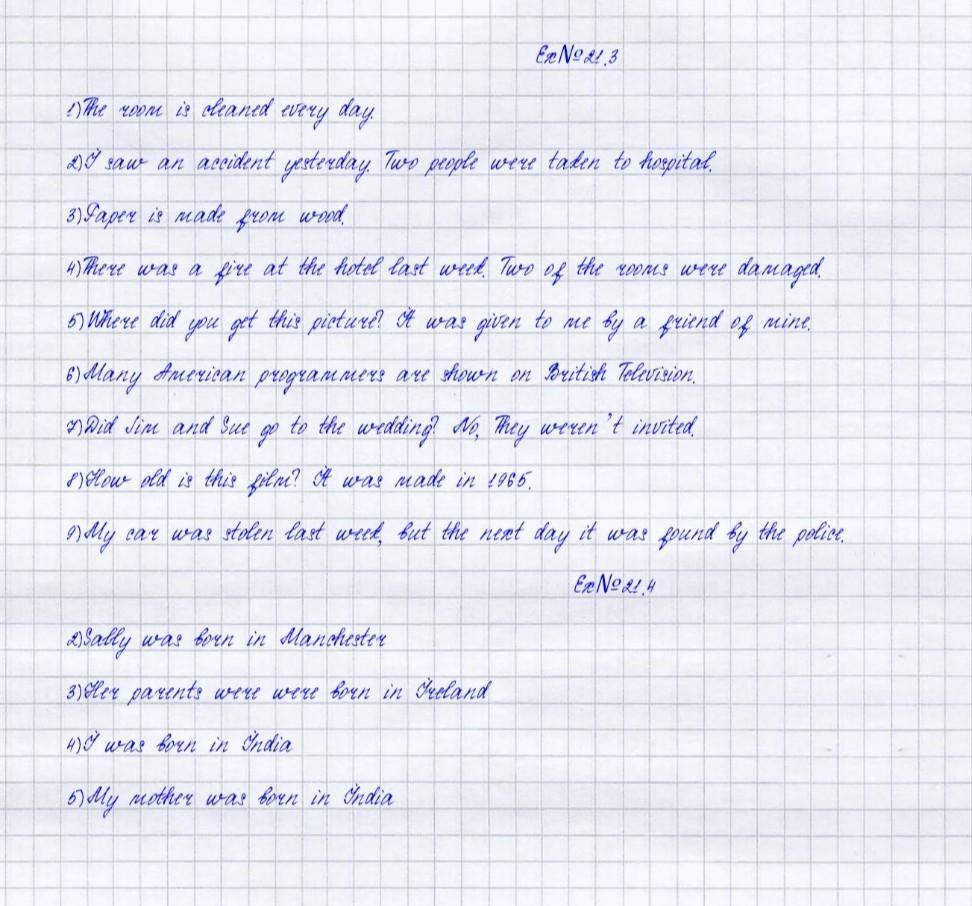 Ex№21.3
1)The room is cleaned every day.
2)I saw an accident yesterday. Two people were taken to hospital.
3)Paper is made from wood.
4)There was a fire at the hotel last week. Two of the rooms were damaged.
5)Where did you get this picture? It was given to me by a friend of mine.
6)Many American programmers are shown on British Television.
7)Did Jim and Sue go to the wedding? No, They weren't invited.
8)How old is this film? It was made in 1965.
9)My car was stolen last week, but the next day it was found by the police.
Ex№21.4
2)Sally was born in Manchester
3)Her parents were were born in Ireland
4)I was born in India
5)My mother was born in India